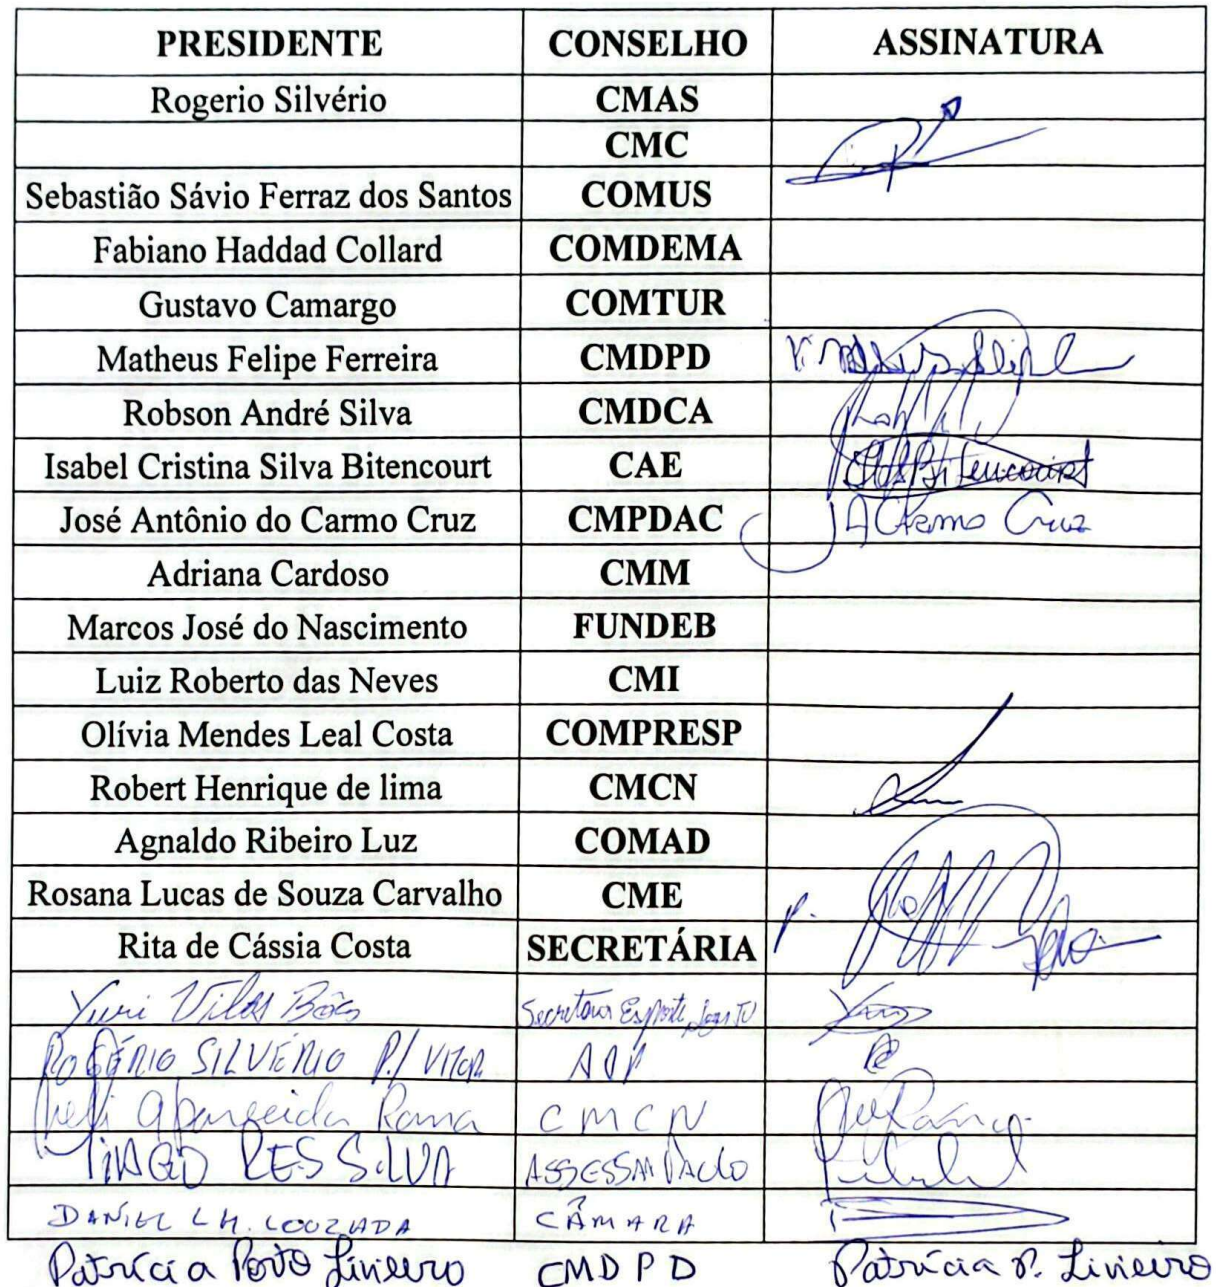 PRESIDENTE CONSELHO ASSINATURA
Rogerio Silvério CMAS
CMC
Sebastião Sávio Ferraz dos Santos COMUS
Fabiano Haddad Collard COMDEMA
Gustavo Camargo COMTUR
Matheus Felipe Ferreira CMDPD Felipe
Robson André Silva CMDCA
Isabel Cristina Silva Bitencourt CAE Bitencourt
José Antônio do Carmo Cruz CMPDAC JACarmo Cruz
Adriana Cardoso CMM
Marcos José do Nascimento FUNDEB
Luiz Roberto das Neves CMI
Olívia Mendes Leal Costa COMPRESP
Robert Henrique de lima CMCN
Agnaldo Ribeiro Luz COMAD
Rosana Lucas de Souza Carvalho CME
Rita de Cássia Costa SECRETÁRIA
Yuri Vilas Bôas Esporte
ROGÉRIO SILVÉRIO P/ VITOR
Aparecida CMCN
SILVA
DANIEL L.H. LOUZADA CÂMARA
Patrícia Porto Liniero CMDPD Patrícia P. Liniero